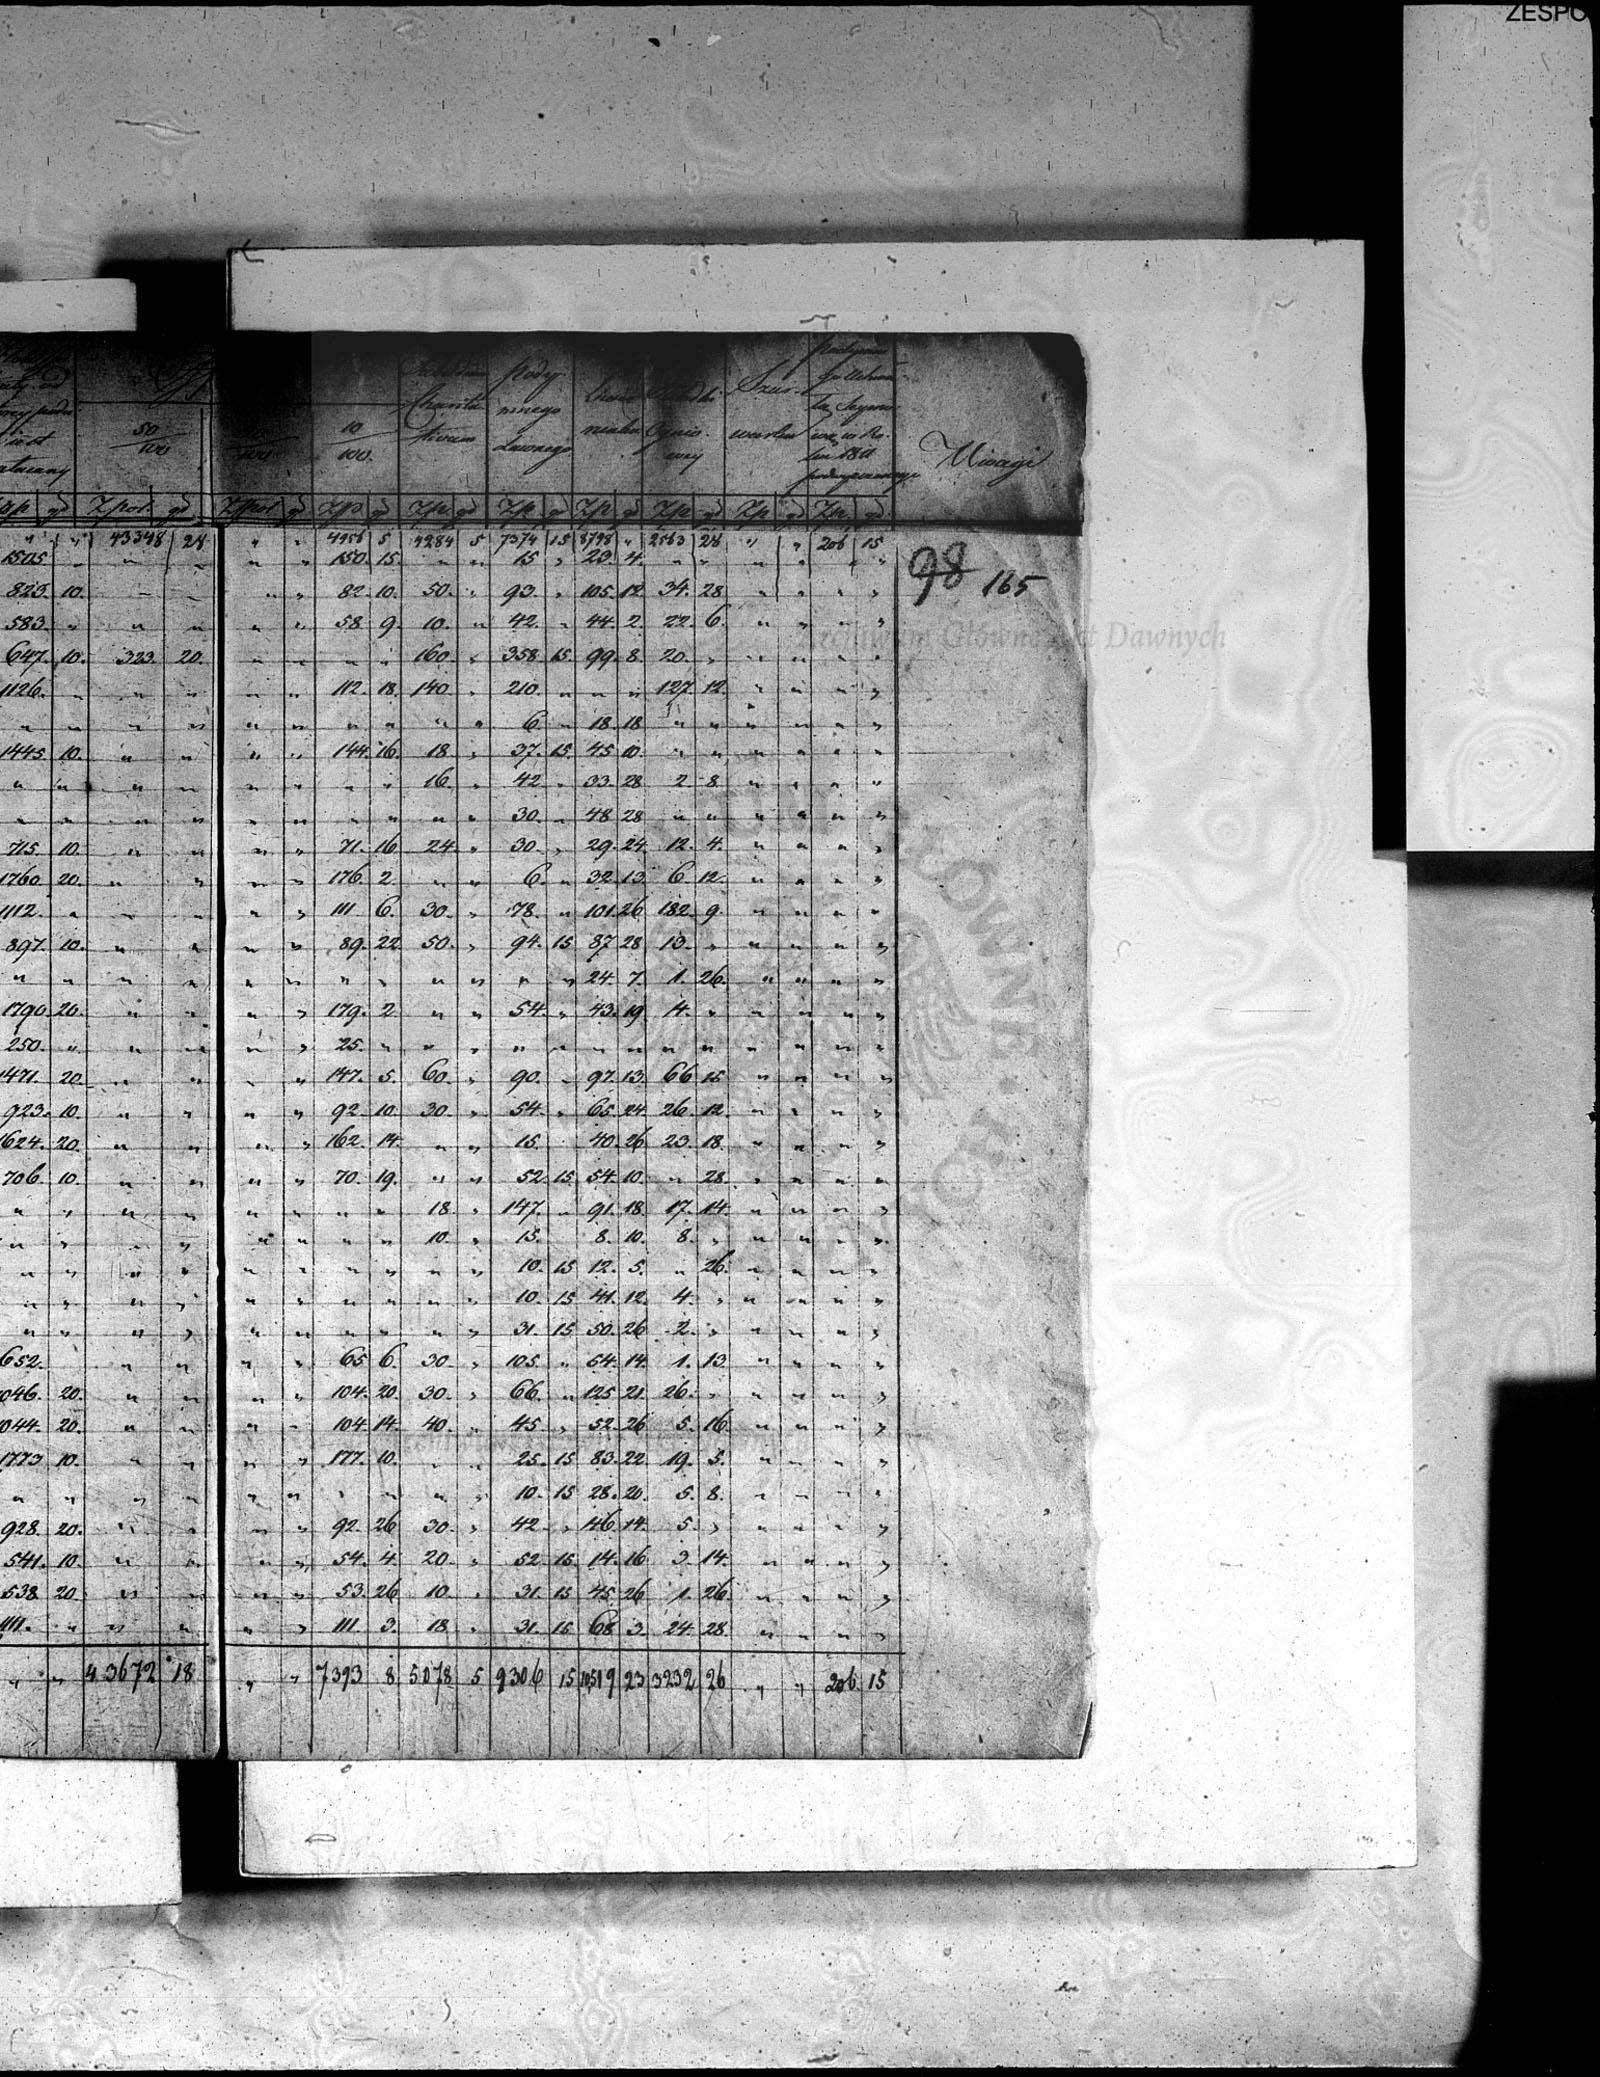 ZESPO
50/100 10/100 Charita- Pody-
tivum mnego Szar- Uwagi
dawnego warku
zp gd Zpol. gd Zpol gd Zp gd Zp gd Zp gd Zp gd Zp gd Zp gd Zp gd
" " 43348 28 " " 4956 5 4284 5 7374 15 8798 " 2563 28 " " 206 15
1505 " " " " " 150. 15. " " 15 " 29. 4. " " " " " "
98 165
823. 10. " " " " 82. 10. 50. " 93. " 105. 12. 34. 28 " " " "
583. " " " " " 58 9. 10. " 42. " 44. 2. 22. 6. " " " "
Archiwum Główne Akt Dawnych
647. 10. 323. 20. " " " " 160. " 358. 15. 99. 8. 20. " " " " "
1126. " " " " " 112. 18. 140. " 210. " " " 127. 12. " " " "
" " " " " " " " " " 6. " 18. 18 " " " " " "
1445. 10. " " " " 144. 16. 18. " 37. 15. 45. 10. " " " " " "
" " " " " " " " 16. " 42. " 33. 28. 2. 8. " " " "
" " " " " " " " " " 30. " 48. 28 " " " " " "
715. 10. " " " " 71. 16. 24. " 30. " 29. 24. 12. 4. " " " "
1760. 20. " " " " 176. 2. " " 6. " 32. 13. 6. 12. " " " "
1112. " " " " " 111. 6. 30. " 78. " 101. 26. 182. 9. " " " "
897. 10. " " " " 89. 22. 50. " 94. 15. 87. 28. 13. " " " " "
" " " " " " " " " " " " 24. 7. 1. 26. " " " "
1790. 20. " " " " 179. 2. " " 54. " 43. 19. 14. " " " " "
250. " " " " " 25. " " " " " " " " " " " " "
1471. 20. " " " " 147. 5. 60. " 90. " 97. 13. 66. 15. " " " "
923. 10. " " " " 92. 10. 30. " 54. " 65. 24. 26. 12. " " " "
1624. 20. " " " " 162. 14. " " 15. 40. 26. 23. 18. " " " "
706. 10. " " " " 70. 19. " " 52. 15. 54. 10. " 28. " " " "
" " " " " " " " 18. " 147. " 91. 18. 17. 14. " " " "
" " " " " " " " 10. " 15. 8. 10. 8. " " " " "
" " " " " " " " " " 10. 15. 12. 5. " 26. " " " "
" " " " " " " " " " 10. 15. 41. 12. 4. " " " " "
" " " " " " " " " " 31. 15. 50. 26. 2. " " " " "
652. " " " " 65. 6. 30. " 105. " 54. 14. 1. 13. " " " "
046. 20. " " " " 104. 20. 30. " 66. " 125. 21. 26. " " " " "
044. 20. " " " " 104. 14. 40. " 45. " 52. 26. 5. 16. " " " "
1773. 10. " " " " 177. 10. " " 25. 15. 83. 22. 19. 5. " " " "
" " " " " " " " " " 10. 15. 28. 20. 5. 8. " " " "
928. 20. " " " " 92. 26. 30. " 42. " 146. 14. 5. " " " " "
541. 10. " " " " 54. 4. 20. " 52. 15. 14. 16. 3. 14. " " " "
538. 20. " " " " 53. 26. 10. " 31. 15. 45. 26. 1. 26. " " " "
1111. " " " " " 111. 3. 18. " 31. 15. 68. 3. 24. 28. " " " "
" " 43672 18 " " 7393 8 5078 5 9306 15 10519 23 3232 26 " " 206 15